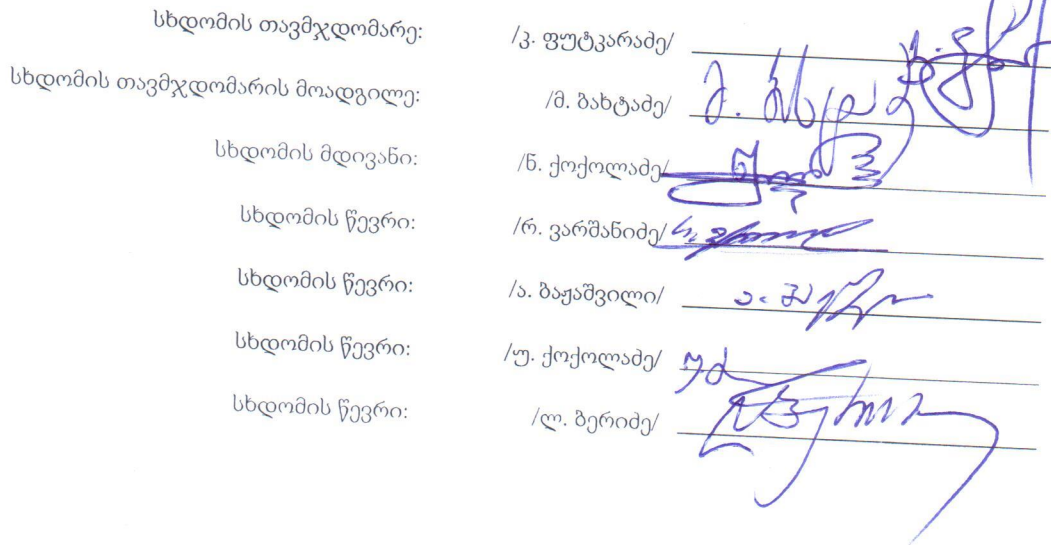 სხდომის თავმჯდომარე: /კ. ფუტკარაძე/
სხდომის თავმჯდომარის მოადგილე: /მ. ბახტაძე/
სხდომის მდივანი: /ნ. ქოქოლაძე/
სხდომის წევრი: /რ. ვარშანიძე/
სხდომის წევრი: /ა. ბაჟაშვილი/
სხდომის წევრი: /უ. ქოქოლაძე/
სხდომის წევრი: /ლ. ბერიძე/